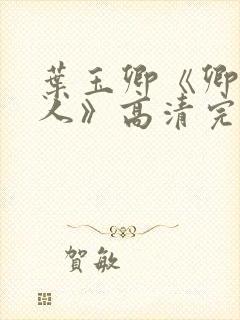 葉玉卿《卿
人》高清完
賀敏